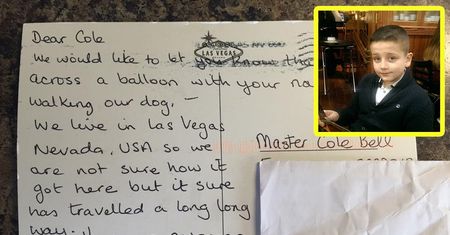 Dear Cole
We would like to let you know tha
across a balloon with your na
walking our dog. —
We live in Las Vegas
Nevada, USA so we
are not sure how it
got here but it sure
has travelled a long long
way. !!
LAS VEGAS
Master Cole Bell